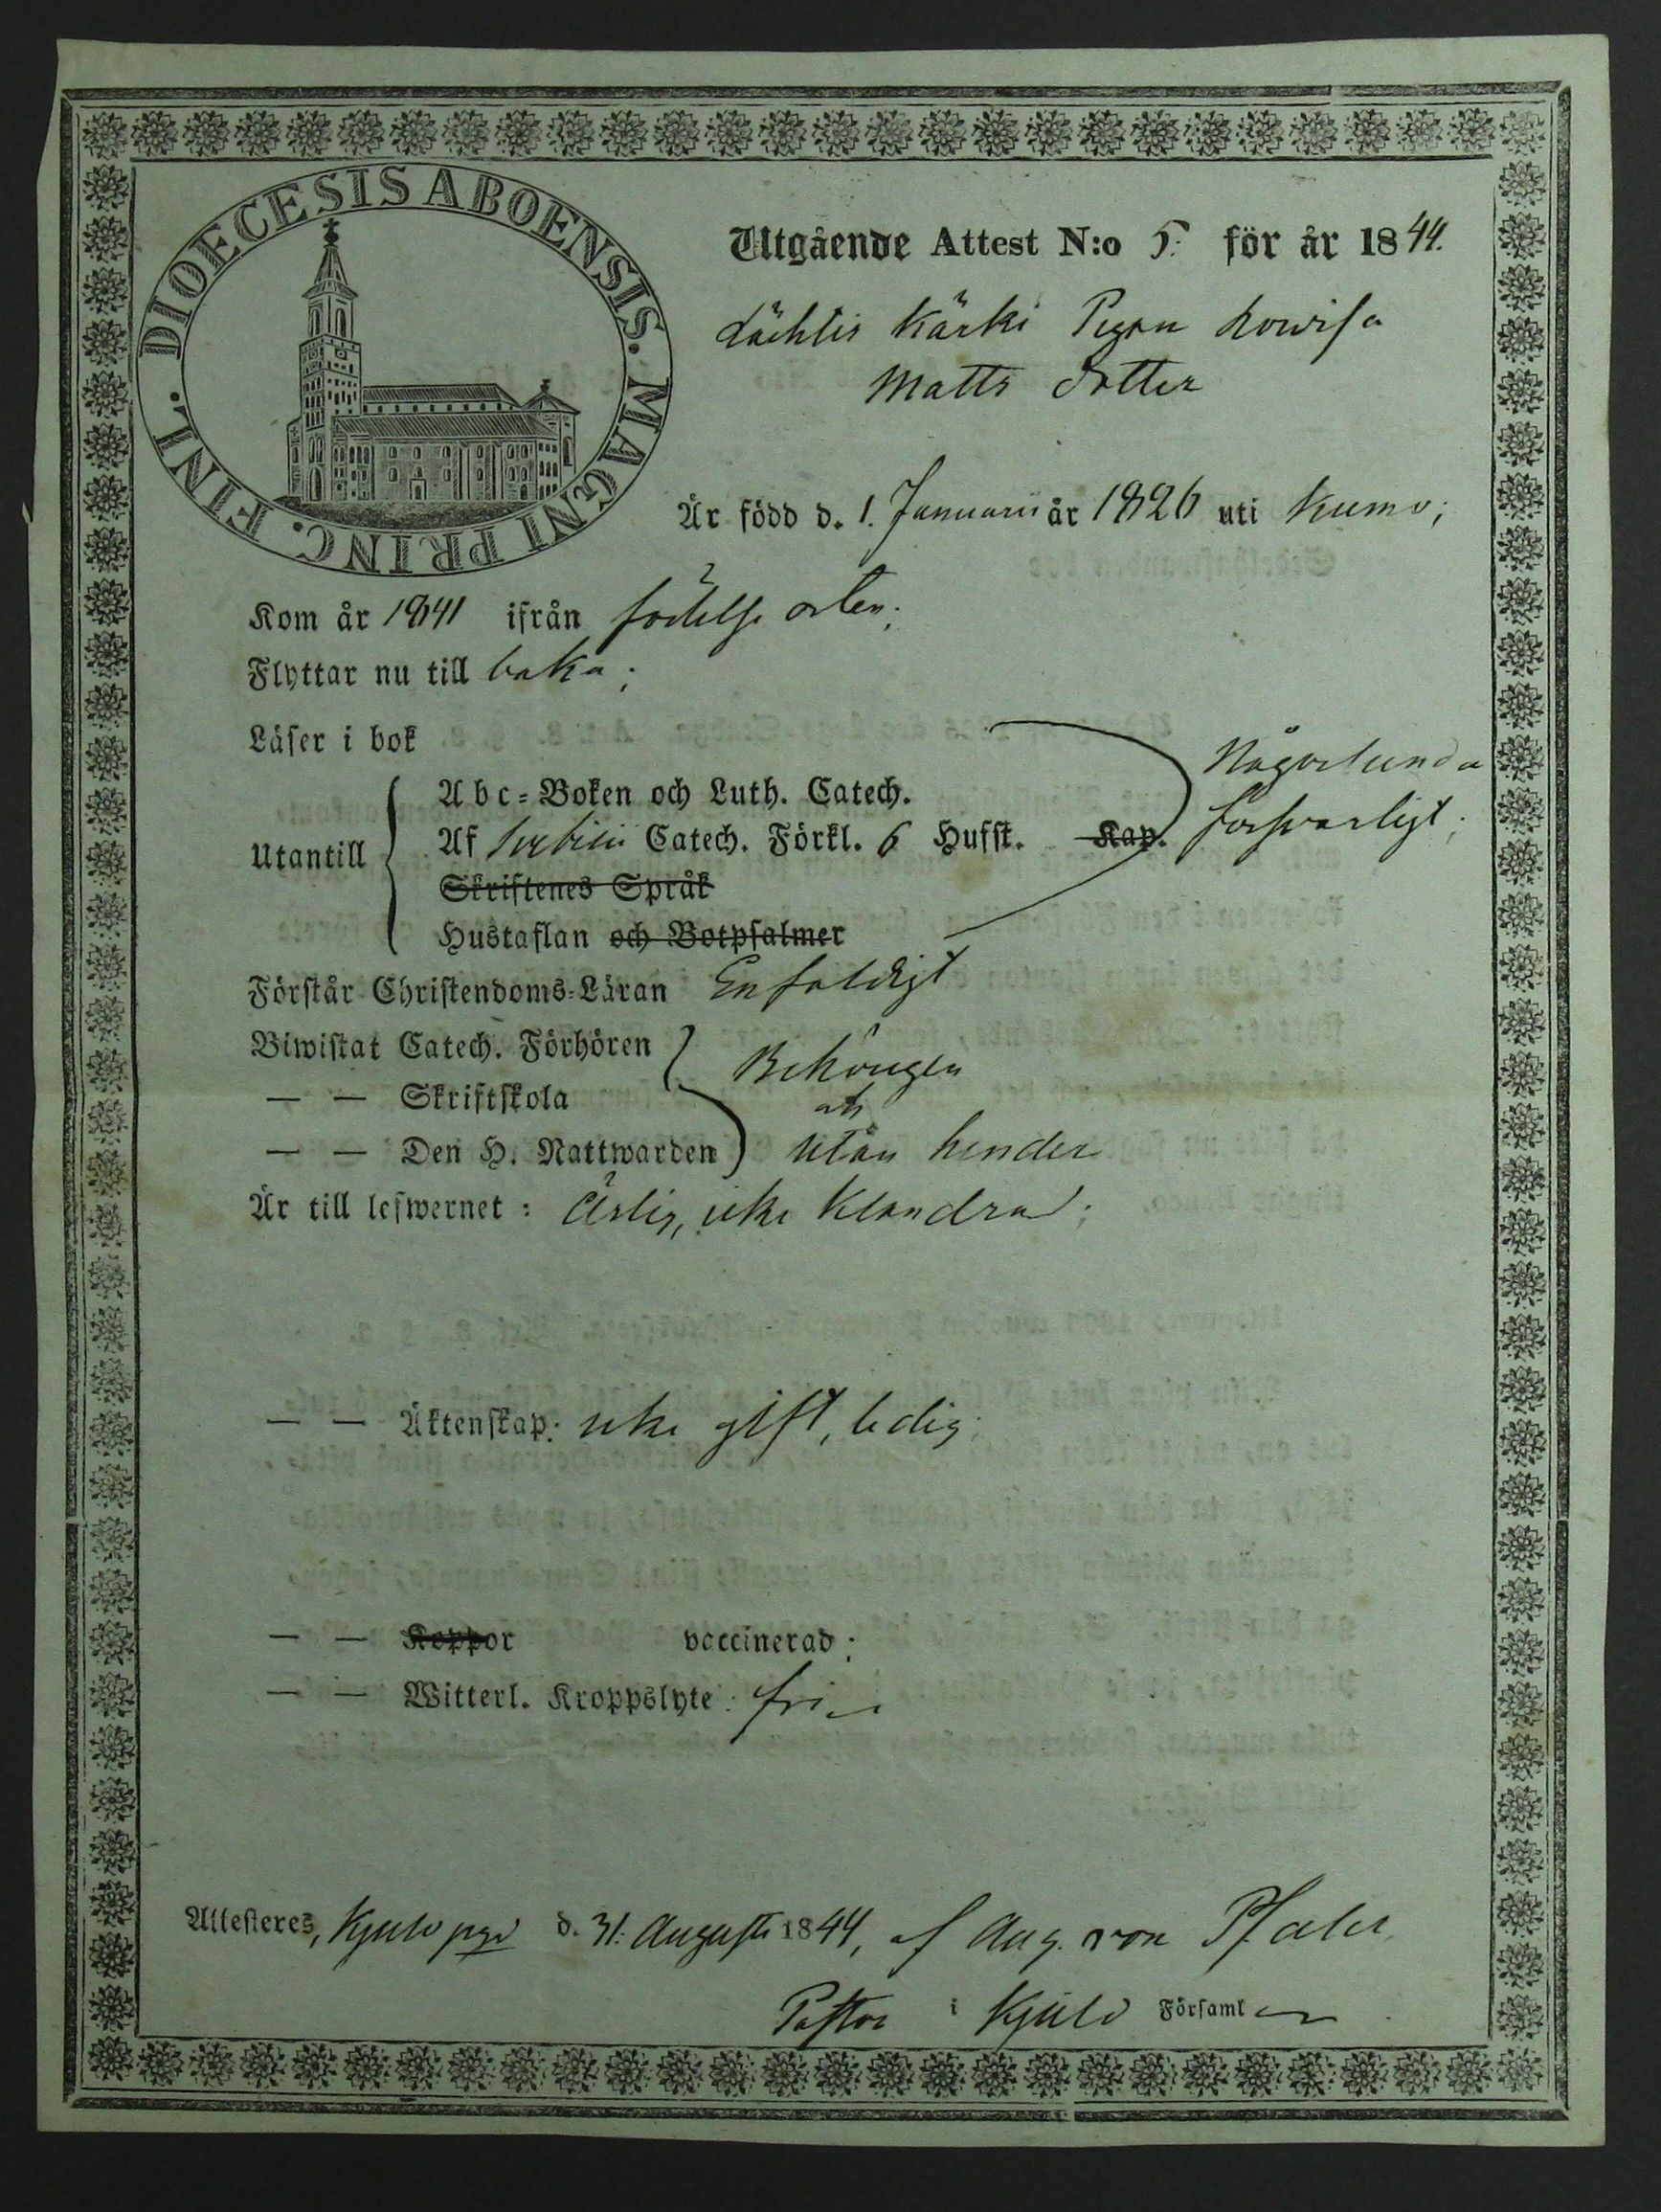 DIOECESIS ABOENSIS. MAGNI PRINC. FINL.
Utgående Attest N:o 5. för år 1844.
Kärki Pigan Lowisa
Matts dotter
Är född d. 1. Januarii år 1826 uti Kumo;
Kom år 1841 ifrån födelse orten;
Flyttar nu till baka;
Läser i bok
Någorlunda
försvarligt;
Utantill
Abc-Boken och Luth. Catech.
Af Svebilii Catech. Förkl. 6 Hufst. Kap.
Skriftenes Språk
Hustaflan och Botpsalmer
Förstår Christendoms-Läran Enfaldigt
Biwistat Catech. Förhören
Behörigen
— — Skriftskola
och
— — Den H. Nattwarden utan hinder
Är till lefwernet: Ärlig, icke klandrad;
— — Äktenskap: icke gift, ledig;
— — Koppor vaccinerad;
— — Witterl. Kroppslyte: fri
Attesteres, Kjulo pgd d. 31. Augusti 1844, af Aug. von Pfaler
Pastor i Kjulo Församl